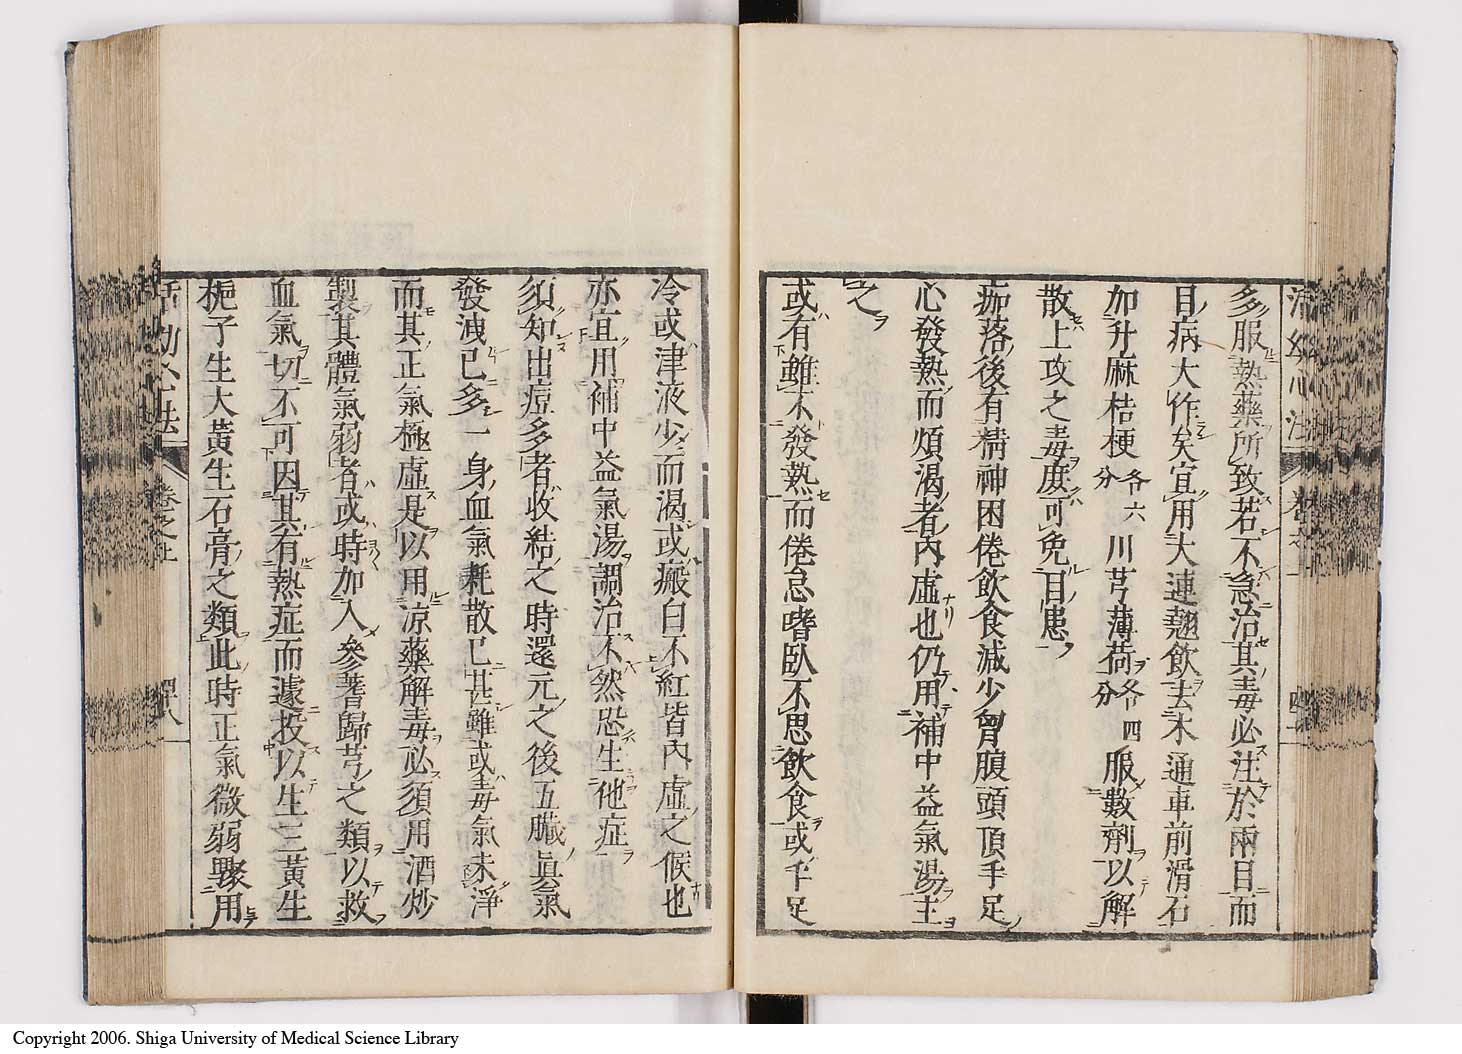 多服熱藥所致若不急治其毒必注於兩目而
目病大作矣宜用大連翹飲去木通車前滑石
加升麻桔梗各六分川芎薄荷各四分服數劑以解
散上攻之毒庻可免目患
痂落後有精神困倦飲食減少胷腹頭頂手足
心發熱而煩渴者內虛也仍用補中益氣湯主
之
或有雖不發熱而倦怠嗜臥不思飲食或手足
冷或津液少而渴或瘢白不紅皆內虛之候也
亦宜用補中益氣湯調治不然恐生他症
須知出痘多者收結之時還元之後五臟眞氣
發洩已多一身血氣耗散已甚雖或毒氣未淨
而其正氣極虛是以用凉藥解毒必須用酒炒
製其體氣弱者或時加入參耆歸芎之類以救
血氣切不可因其有熱症而遽投以生三黃生
梔子生大黃生石膏之類此時正氣微弱驟用
活幼心法
卷之上
Copyright 2006. Shiga University of Medical Science Library